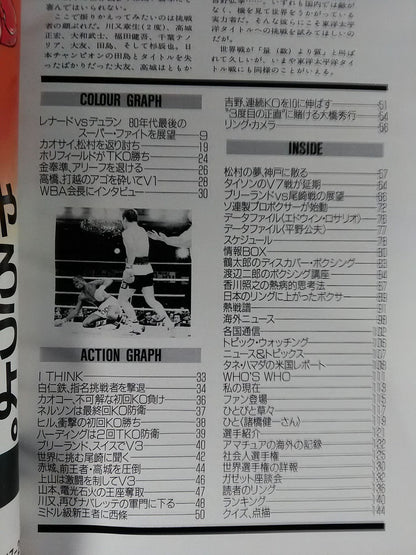 喜んではいられない。
ここで振りかえってみたいのは挑戦
者の顔ぶれだ。川又栄生(2度)、高城
正宏、大和武士、福田健吾、千葉アノ
リア、大友、田島、そして杉谷也。日
本チャンピオンの田島とタイトルを失
ったばかりだった大友、高城はともか
COLOUR GRAPH
レナードvsデュラン 80年代最後の
スーパー・ファイトを展望 9
カオサイ、松村を返り討ち 19
ホリフィールドがTKO勝ち 24
金奉準、アリーフを退ける 26
高橋、打越のアゴを砕いてV1 28
WBA会長にインタビュー 30
ACTION GRAPH
I THINK 33
白仁鉄、指名挑戦者を撃退 34
カオコー、不可解な初回KO負け 36
ネルソンは最終回KO防衛 37
ヒル、衝撃の初回KO勝ち 38
ハーディングは2回TKO防衛 39
ブリーランド、スイスでV3 40
世界に挑む尾崎に聞く 42
赤城、前王者・高城を圧倒 44
上山は激闘を制してV3 46
山本、電光石火の王座奪取 47
川又、再びナバレッテの軍門に下る 48
ミドル級新王者に西條 50
実力者だ。そんな彼らにこそ東洋太平
洋タイトルへの挑戦を試みてほしいの
だ。
世界戦が「量(数)より質」と呼ば
れて久しいが、いまや東洋太平洋タイ
トル戦にも同様のことがいえる。
吉野、連続KOを10に伸ばす 51
“3度目の正直”に賭ける大橋秀行 54
リング・カメラ 56
INSIDE
松村の夢、神戸に散る 57
タイソンのV7戦が延期 64
ブリーランドvs尾崎戦の展望 66
ソ連製プロボクサーが始動 72
データファイル(エドウィン・ロサリオ) 76
データファイル(平野公夫) 77
スケジュール 78
情報BOX 80
鶴太郎のディスカバー・ボクシング 83
渡辺二郎のボクシング講座 84
香川照之の熱病的思考法
日本のリングに上がったボクサー
熱戦譜
海外ニュース
各国通信
トピック・ウォッチング
ニュース&トピックス
タネ・ハマダの米国レポート
WHO'S WHO
私の現在
ファン登場
ひとびと草々
ひと(諸橋健一さん)
選手紹介
アマチュアの海外の記録
社会人選手権
世界選手権の詳報
ガゼット座談会
読者のリング
ランキング
クイズ、点描 144
やるっよ。